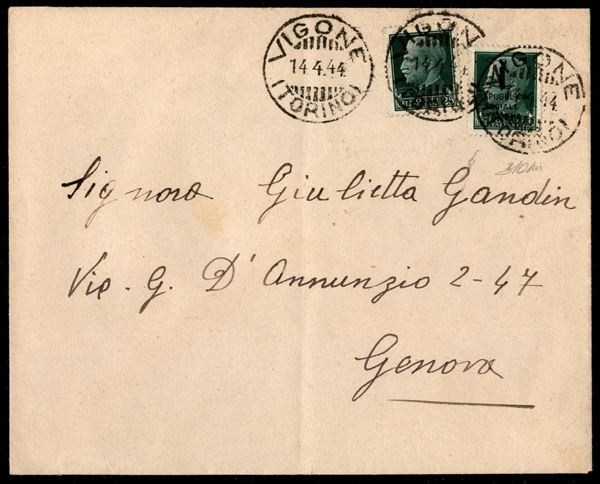 VIGONE
14.4.44
(TORINO)
VIGON
14.4
REPUBBLICA
SOCIALE
VIGONE
44
310bis
Signora Giulietta Gandin
Via . G. D'Annunzio 2-47
Genova